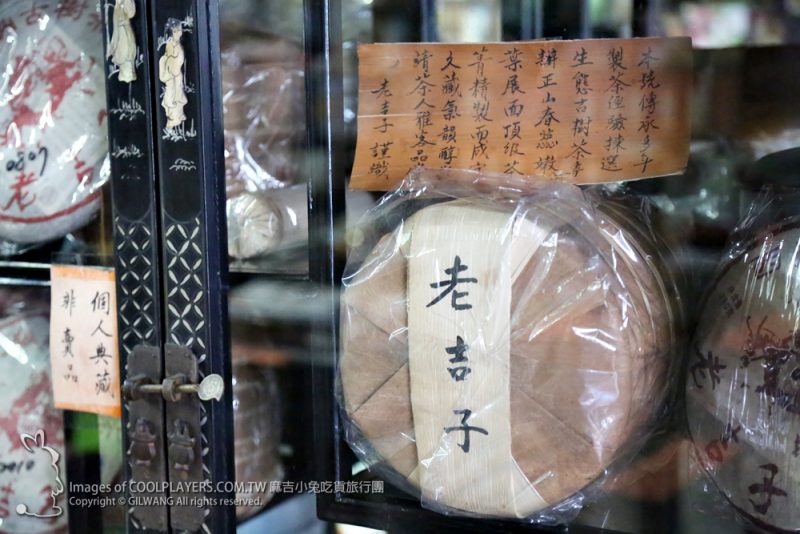 本號傳承多年
製茶經驗採選
生態古樹茶
辦正山春蕊嫩
葉展面頂級茶
菁精製而成
文藏氣韻醇
請茶人雅客品
老吉子謹識
老吉子
個人典藏
非賣品
古樹
0807
老
0010
老
子
Images of COOLPLAYERS.COM.TW 麻吉小兔吃貨旅行團
Copyright © GILWANG All rights reserved.